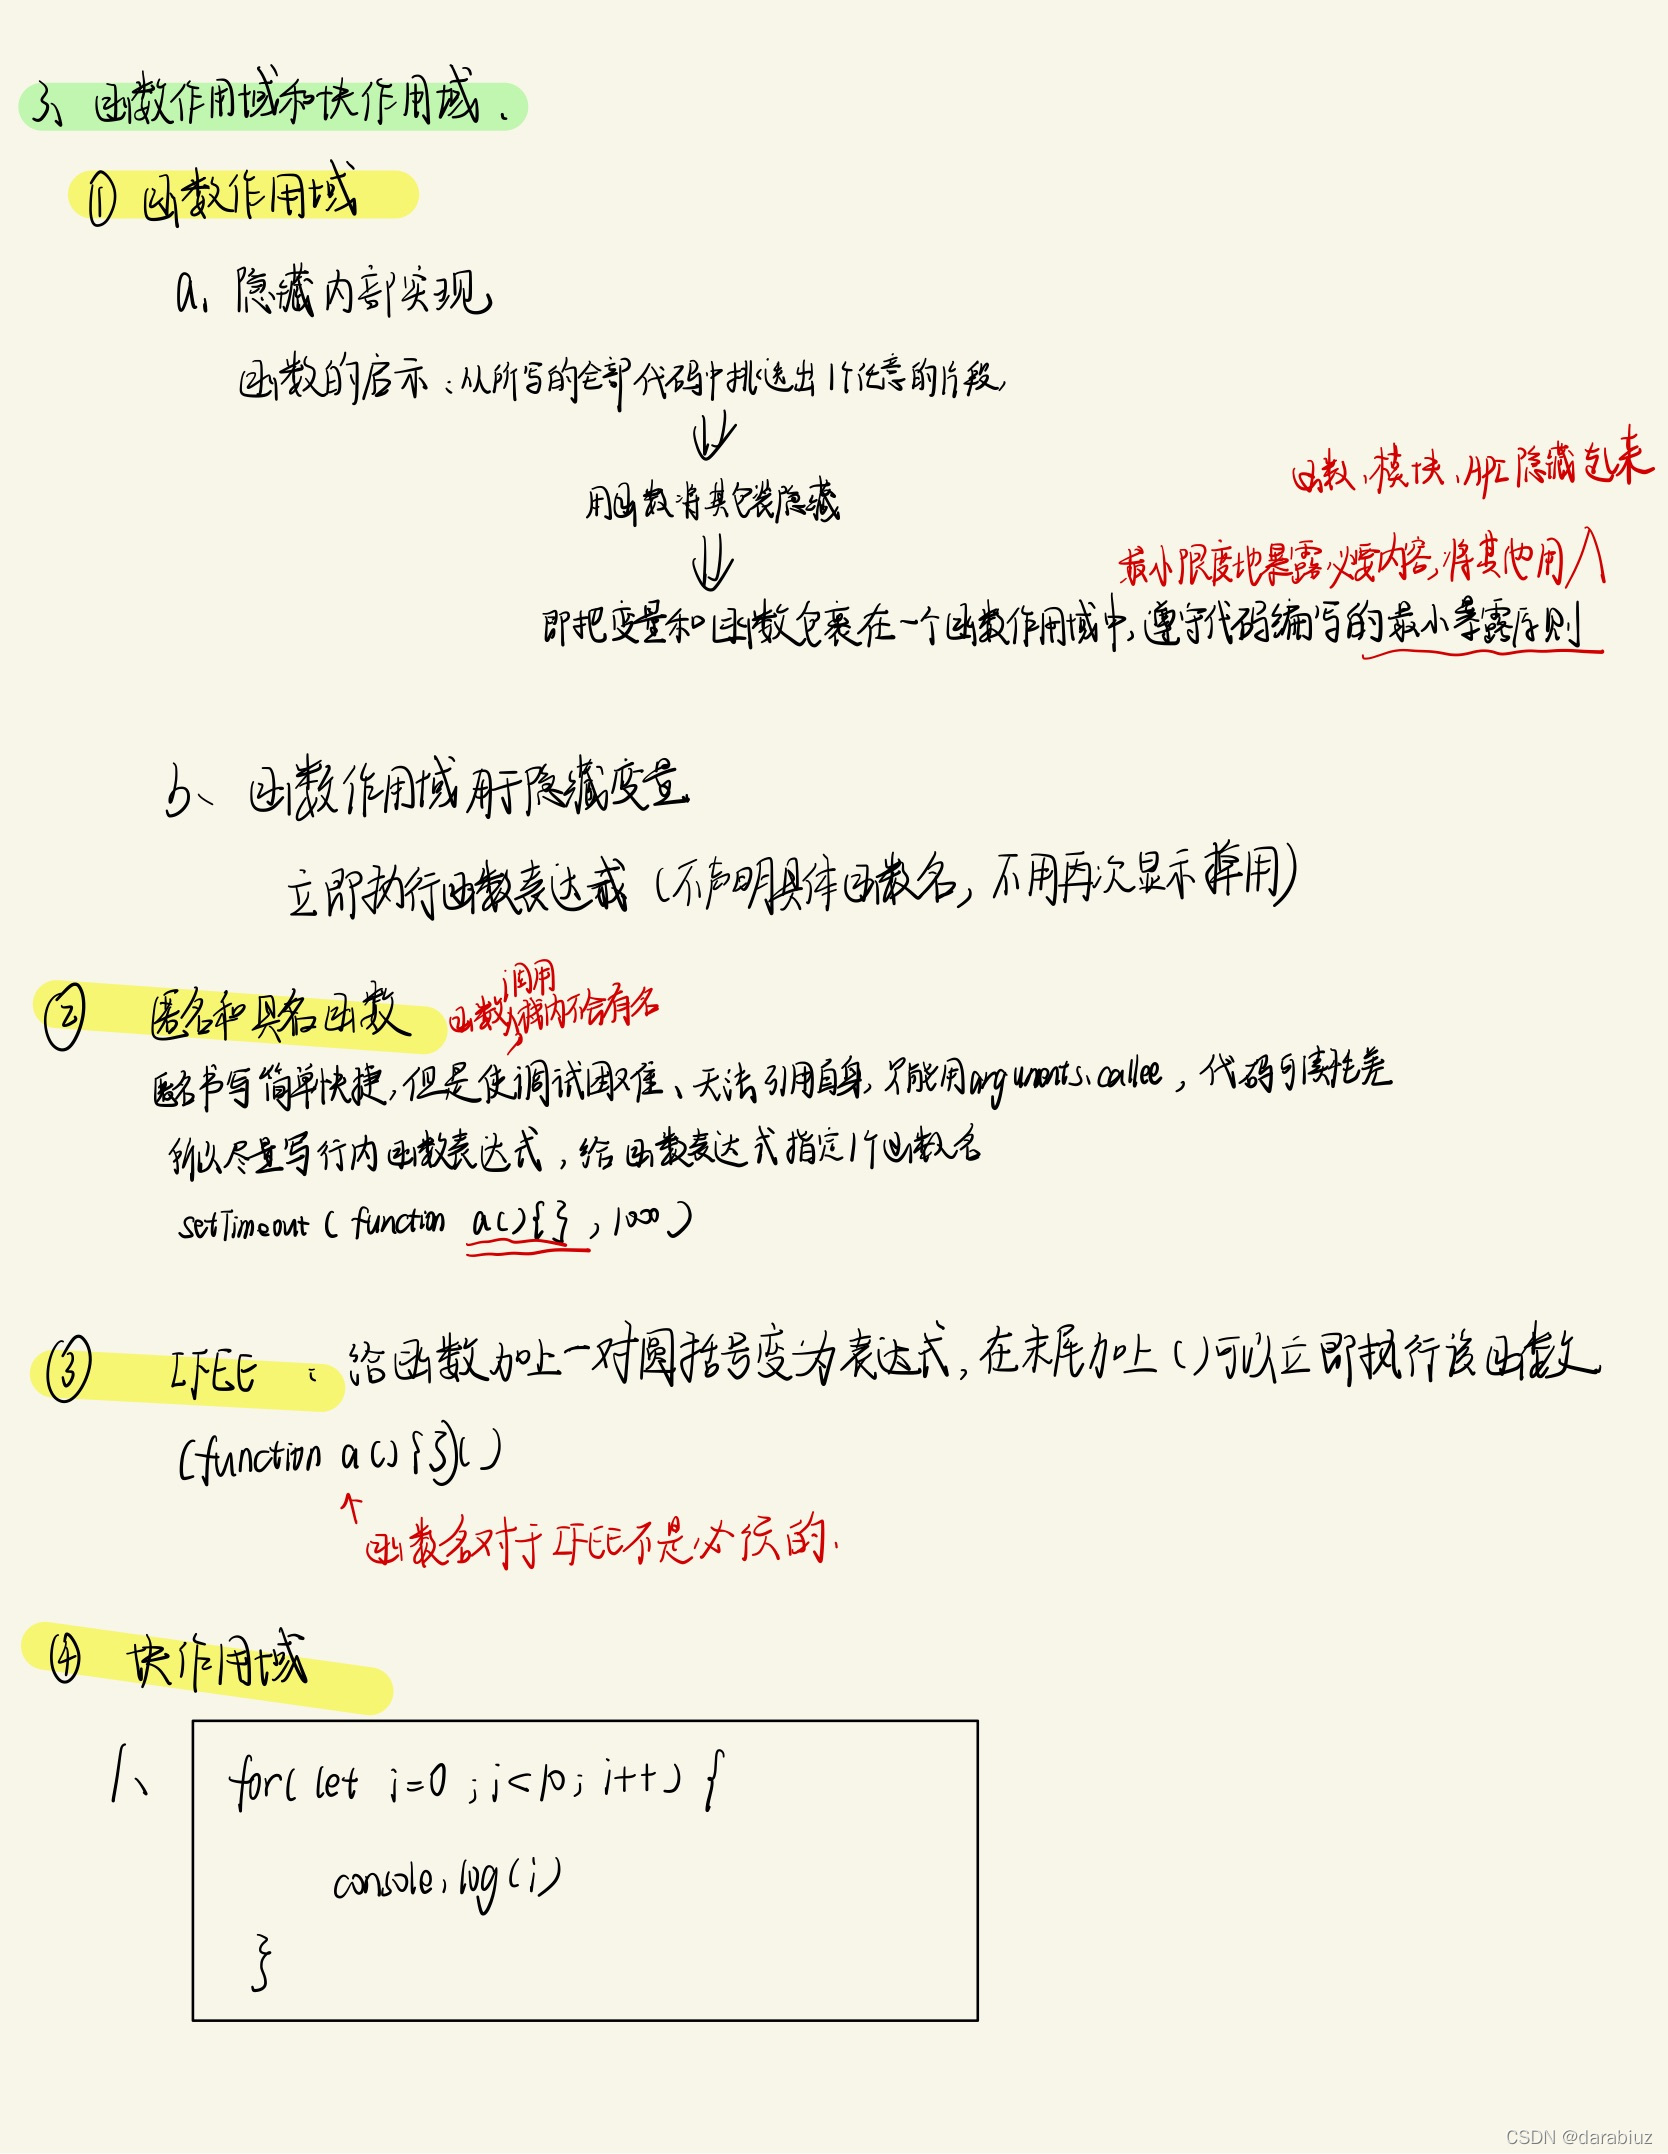 3、函数作用域和块作用域.
① 函数作用域
a. 隐藏内部实现
函数的启示：从所写的全部代码中挑选出1个任意的片段,
用函数将其包装隐藏
函数、模块、API隐藏起来
最小限度地暴露必要内容,将其他用
即把变量和函数包裹在一个函数作用域中,遵守代码编写的最小暴露原则
b、函数作用域用于隐藏变量
立即执行函数表达式（不声明具体函数名，不用再次显示调用）
② 匿名和具名函数
调用
函数 域内不会有名
匿名书写简单快捷,但是使调试困难、无法引用自身,只能用arguments.callee，代码可读性差
所以尽量写行内函数表达式，给函数表达式指定1个函数名
setTimeout ( function a(){}, 1000 )
③ IFEE ：给函数加上一对圆括号变为表达式,在末尾加上()可以立即执行该函数
(function a(){})()
↑
函数名对于IFEE不是必须的.
④ 块作用域
1、
for( let i=0 ; i<10; i++) {
console.log(i)
}
CSDN @darabiuz